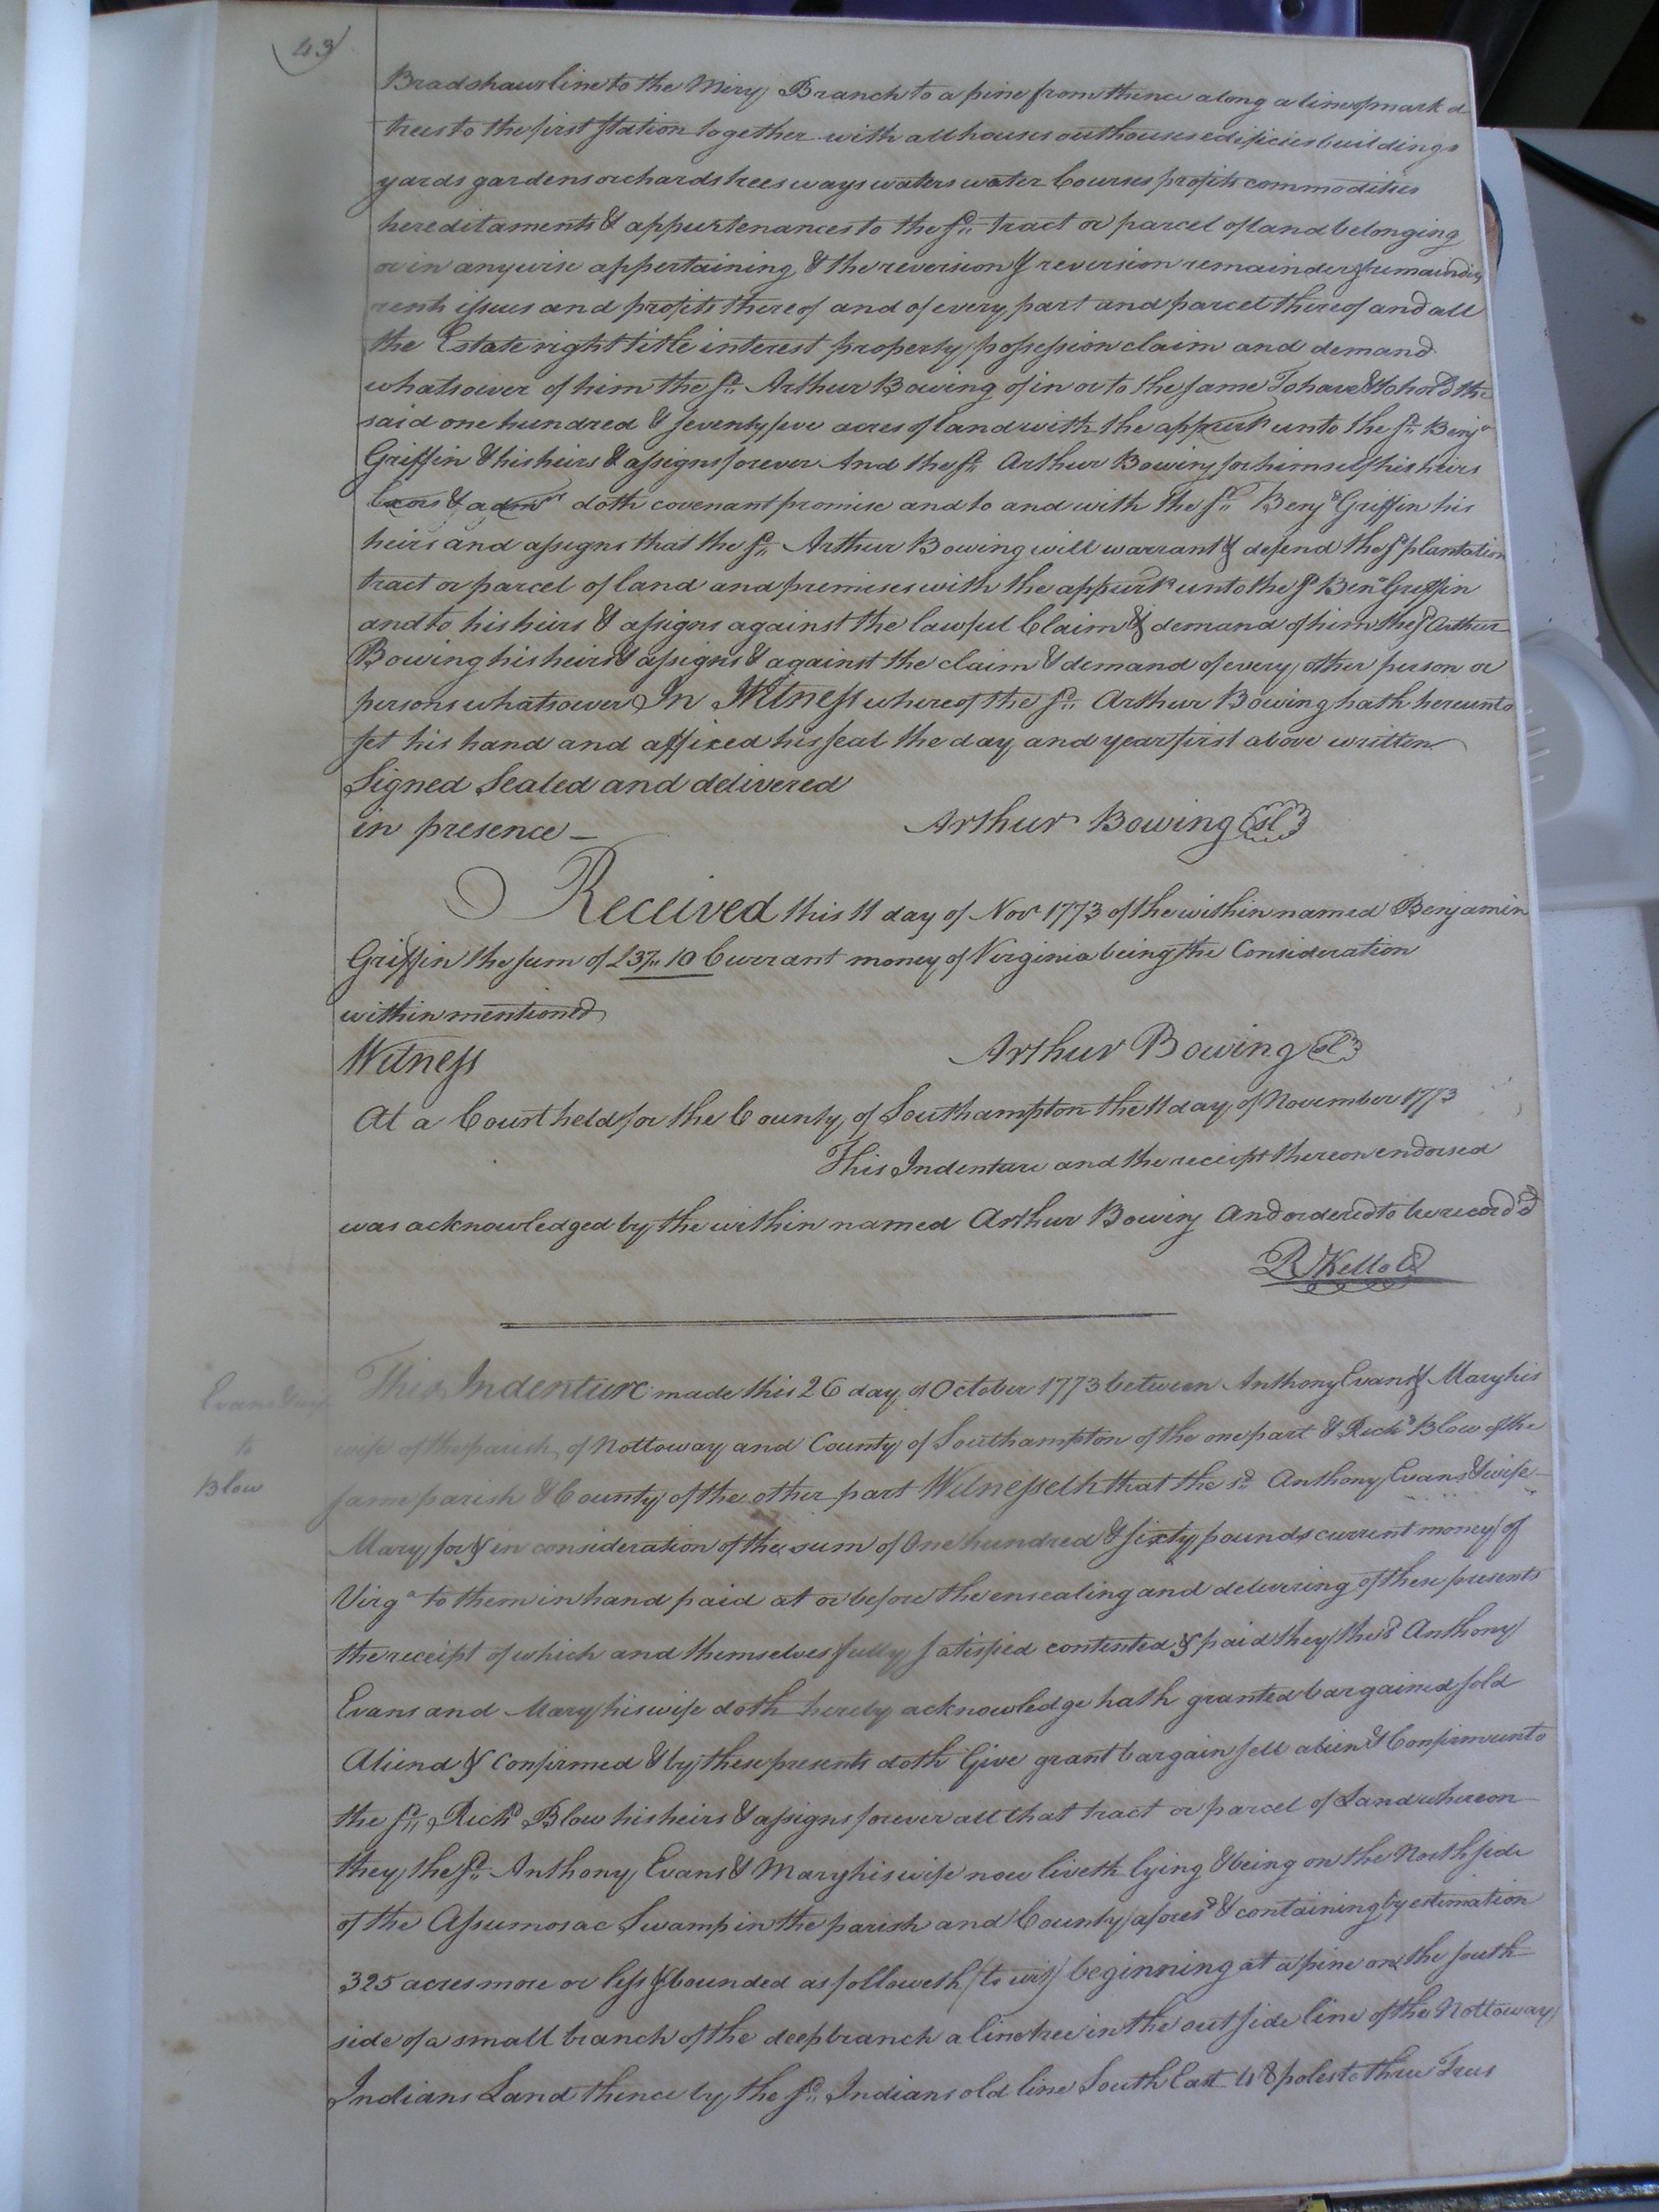 43
Bradshaws line to the Miry Branch to a pine from thence along a line of mark d
trees to the first Station together with all houses outhouses edificies buildings
yards gardens orchards trees ways waters water Courses profits commodities
hereditaments & appurtenances to the sd. tract or parcel of land belonging
or in anywise appertaining & the reversion & reversion remainder & remainders
rents issues and profits thereof and of every part and parcel thereof and all
the Estate right title interest property possession claim and demand
whatsoever of him the sd. Arthur Bowing of in or to the same To have & to hold the
said one hundred & seventy five acres of land with the appurts unto the sd. Benja
Griffin & his heirs & assigns forever And the sd. Arthur Bowing for himself his heirs
Exors & admrs doth covenant promise and to and with the sd. Benja Griffin his
heirs and assigns that the sd. Arthur Bowing will warrant & defend the sd plantation
tract or parcel of land and premises with the appurts unto the sd Bena Griffin
and to his heirs & assigns against the lawful Claim & demand of him the sd Arthur
Bowing his heirs & assigns & against the claim & demand of every other person or
persons whatsoever In Witness whereof the sd. Arthur Bowing hath hereunto
set his hand and affixed his seal the day and year first above written
Signed Sealed and delivered
in presence - Arthur Bowing sl
Received this 11 day of Nov 1773 of the within named Benjamin
Griffin the sum of £37.. 10 Currant money of Virginia being the Consideration
within mentioned
Witness Arthur Bowing sl
At a Court held for the County of Southampton the 11 day of November 1773
This Indenture and the receipt thereon endorsed
was acknowledged by the within named Arthur Bowing And ordered to be record'd
R Kello C
This Indenture made this 26 day of October 1773 between Anthony Evans & Mary his
Evans
wife of the parish of Nottoway and County of Southampton of the one part & Richd Blow of the
to
same parish & County of the other part Witnesseth that the sd. Anthony Evans & wife
Blow
Mary for & in consideration of the sum of One hundred & sixty pounds current money of
Virga to them in hand paid at or before the ensealing and delivering of these presents
the receipt of which and themselves fully satisfied contented & paid they the sd Anthony
Evans and Mary his wife doth hereby acknowledge hath granted bargained sold
Aliend & Confirmed & by these presents doth Give grant bargain sell alien & Confirm unto
the sd. Richd Blow his heirs & assigns forever all that tract or parcel of Land whereon
they the sd. Anthony Evans & Mary his wife now liveth lying & being on the North side
of the Assumosac Swamp in the parish and County aforesd & containing by estimation
325 acres more or less & bounded as followeth (to wit) beginning at a pine on the south
side of a small branch of the deep branch a line tree in the outside line of the Nottoway
Indians Land thence by the sd. Indians old line South East 48 poles to three Trees